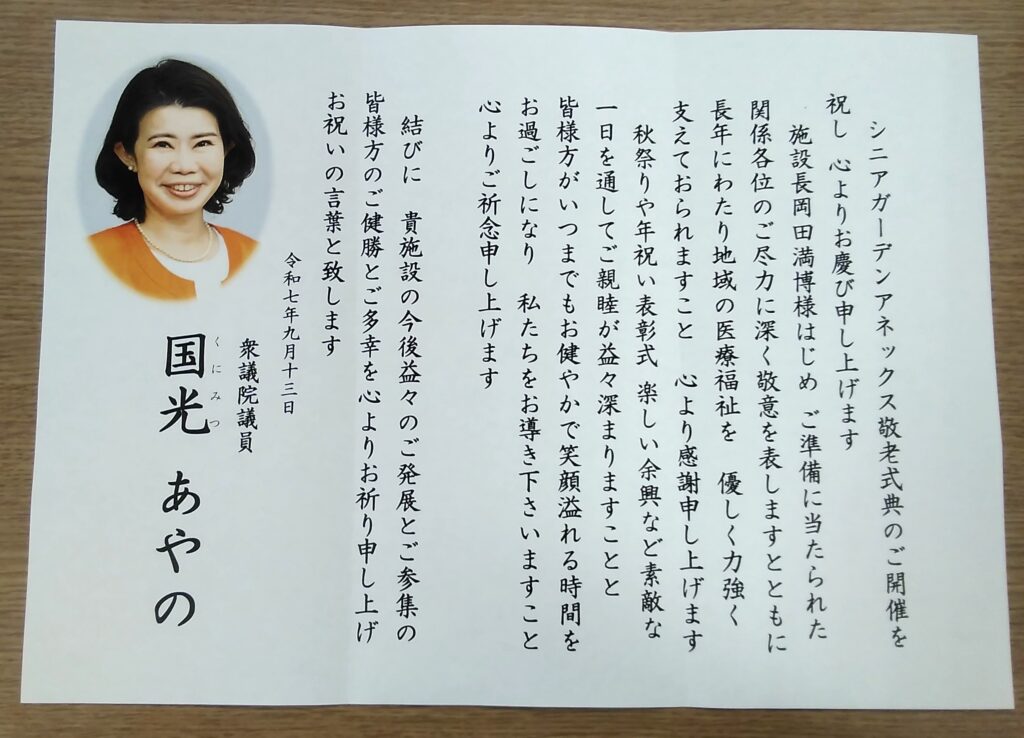 シニアガーデンアネックス敬老式典のご開催を
祝し　心よりお慶び申し上げます
施設長岡田満博様はじめ　ご準備に当たられた
関係各位のご尽力に深く敬意を表しますとともに
長年にわたり地域の医療福祉を　優しく力強く
支えておられますこと　心より感謝申し上げます
秋祭りや年祝い表彰式　楽しい余興など素敵な
一日を通してご親睦が益々深まりますことと
皆様方がいつまでもお健やかで笑顔溢れる時間を
お過ごしになり　私たちをお導き下さいますこと
心よりご祈念申し上げます
結びに　貴施設の今後益々のご発展とご参集の
皆様方のご健勝とご多幸を心よりお祈り申し上げ
お祝いの言葉と致します
令和七年九月十三日
衆議院議員
くにみつ
国光　あやの